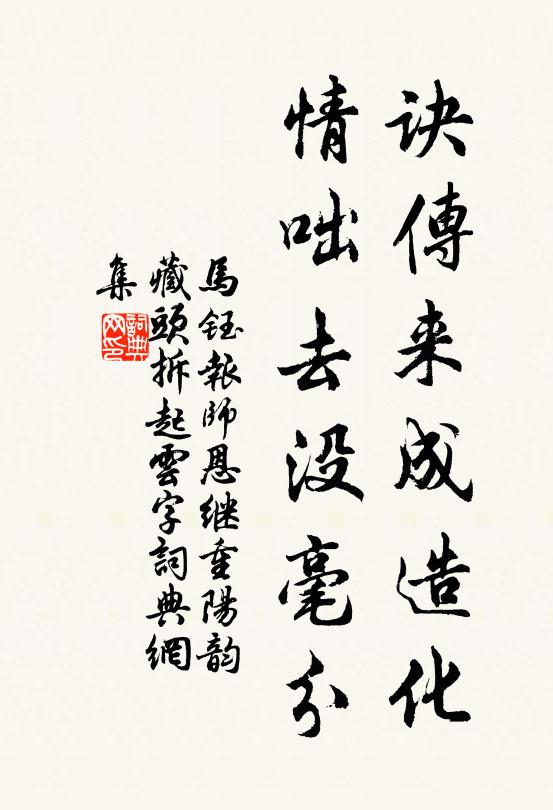 诀傳来成造化
情咄去没毫分
馬鈺報師恩继重陽韵
藏頭拆起雲字詞典網
集
詞典网印